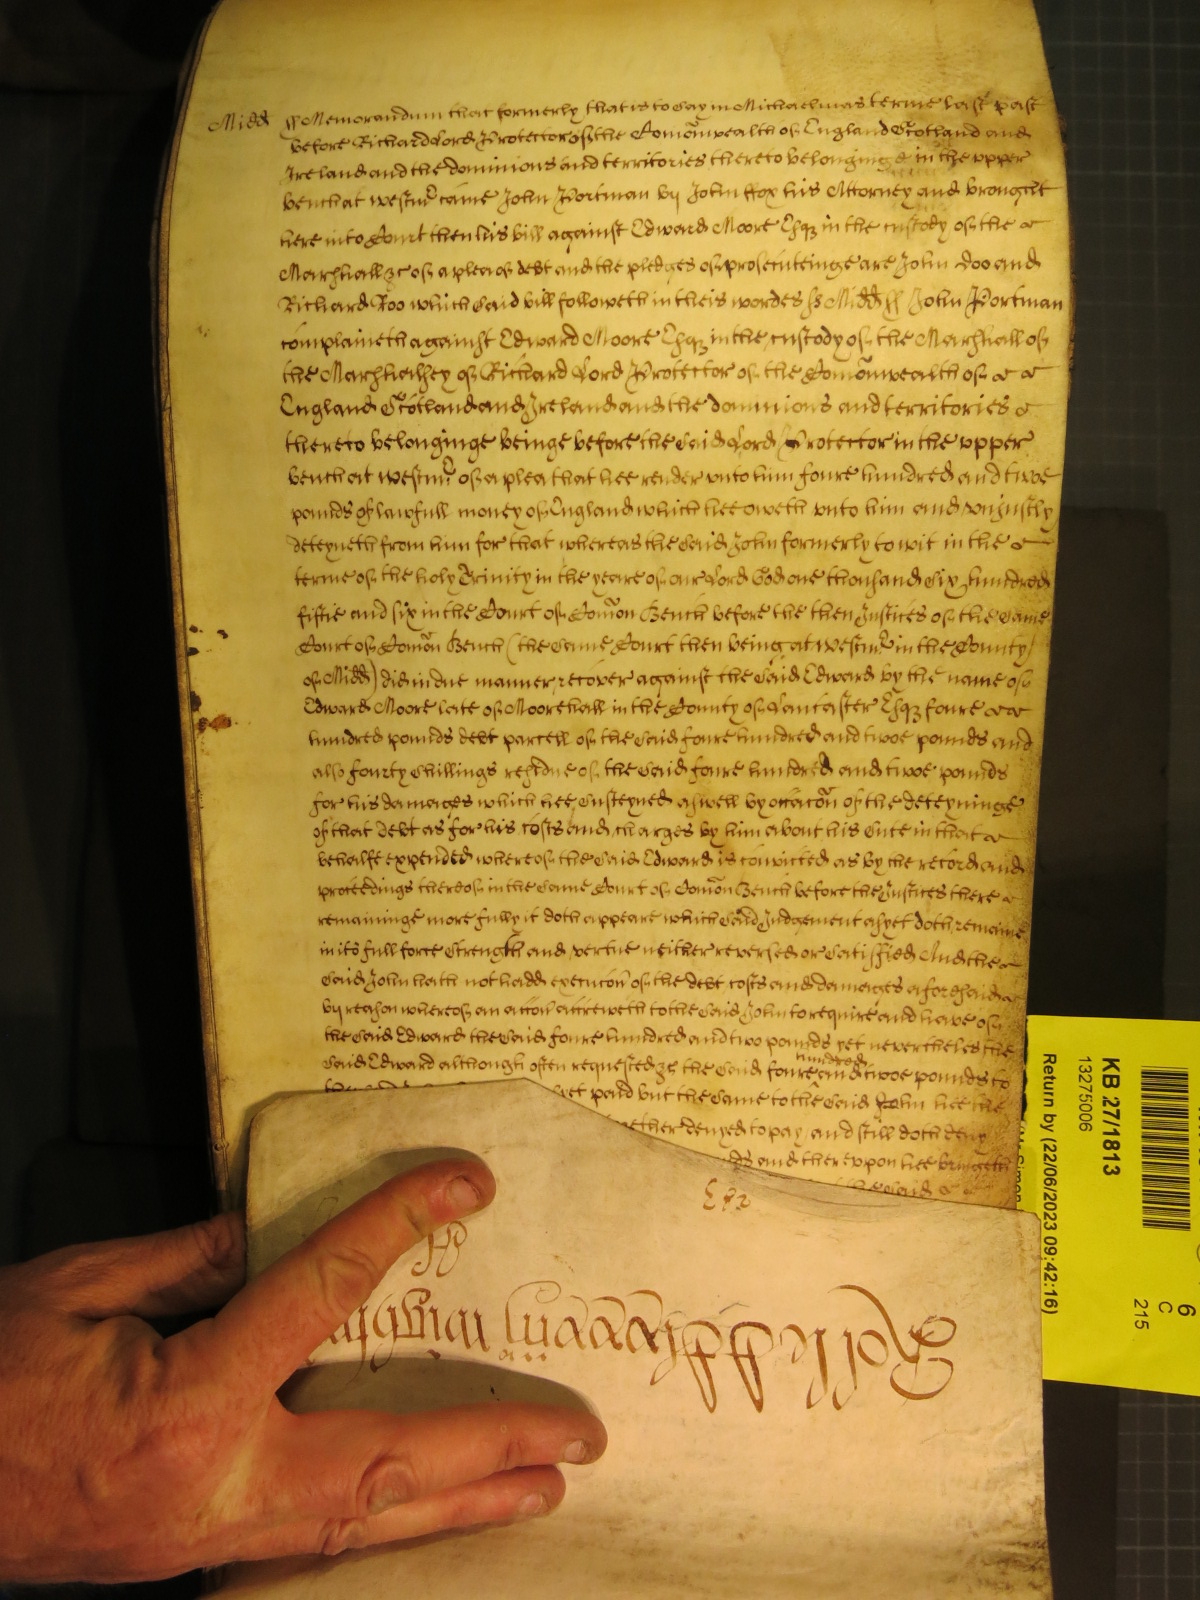 Midd ss Memorandum that formerly that is to say in Michaelmas terme last past
before Richard Lord Protector of the Comōnwealth of England Scotland and
Ireland and the dominions and territories thereto belonginge in the vpper
bench at Westmr came John Portman by John ffox his Attorney and brought
here into Court then his bill against Edward Moore Esqr in the custody of the
Marshall &c of a plea of debt and the pledges of prosecuteinge are John Doo and
Richard Roo which said bill followeth in theis wordes ss Midd ss John Portman
complaineth against Edward Moore Esqr in the custody of the Marshall of
the Marshalsey of Richard Lord Protector of the Comōnwealth of
England Scotland and Ireland and the dominions and territories
thereto belonginge beinge before the said Lord Protector in the vpper
bench at Westmr of a plea that hee render vnto him foure hundred and twoe
pounds of lawfull money of England which hee oweth vnto him and vniustly
deteyneth from him for that whereas the said John formerly to wit in the
terme of the holy Trinity in the yeare of our Lord God one thousand six hundred
fiftie and six in the Court of Comōn Bench before the then Justices of the same
Court of Comōn Bench (the same Court then being at Westmr in the County
of Midd) did in due manner recover against the said Edward by the name of
Edward Moore late of Moorehall in the County of Lancaster Esqr foure
hundred pounds debt parcell of the said foure hundred and twoe pounds and
also fourty shillings residue of the said foure hundred and twoe pounds
for his damages which hee susteyned aswell by occacōn of the deteyninge
of that debt as for his costs and charges by him about his suite in that
behalfe expended whereof the said Edward is convicted as by the record and
proceedings thereof in the same Court of Comōn Bench before the Justices there
remaininge more fully it doth appeare which said Judgement as yet doth remaine
in its full force strength and vertue neither reversed or satisfied And the
said John hath not hadd execucōn of the debt costs and damages aforesaid
by reason whereof an accōn accreweth to the said John to require and have of
the said Edward the said foure hundred and two pounds yet nevertheles the
said Edward although often requested &c the said foure hundred and twoe pounds to
yet paid but the same to the said John hee the
denyed to pay and still doth deny
and therevpon hee bringeth
the said
KB 27/1813
13275006
Return by (22/06/2023 09:42:16)
6
C
215